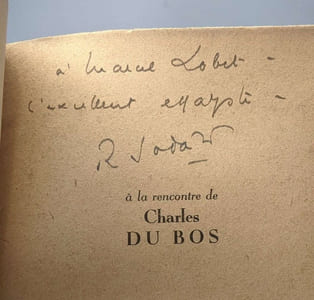 à Marcel Lobet -
l'excellent essayiste -
à la rencontre de
Charles
DU BOS